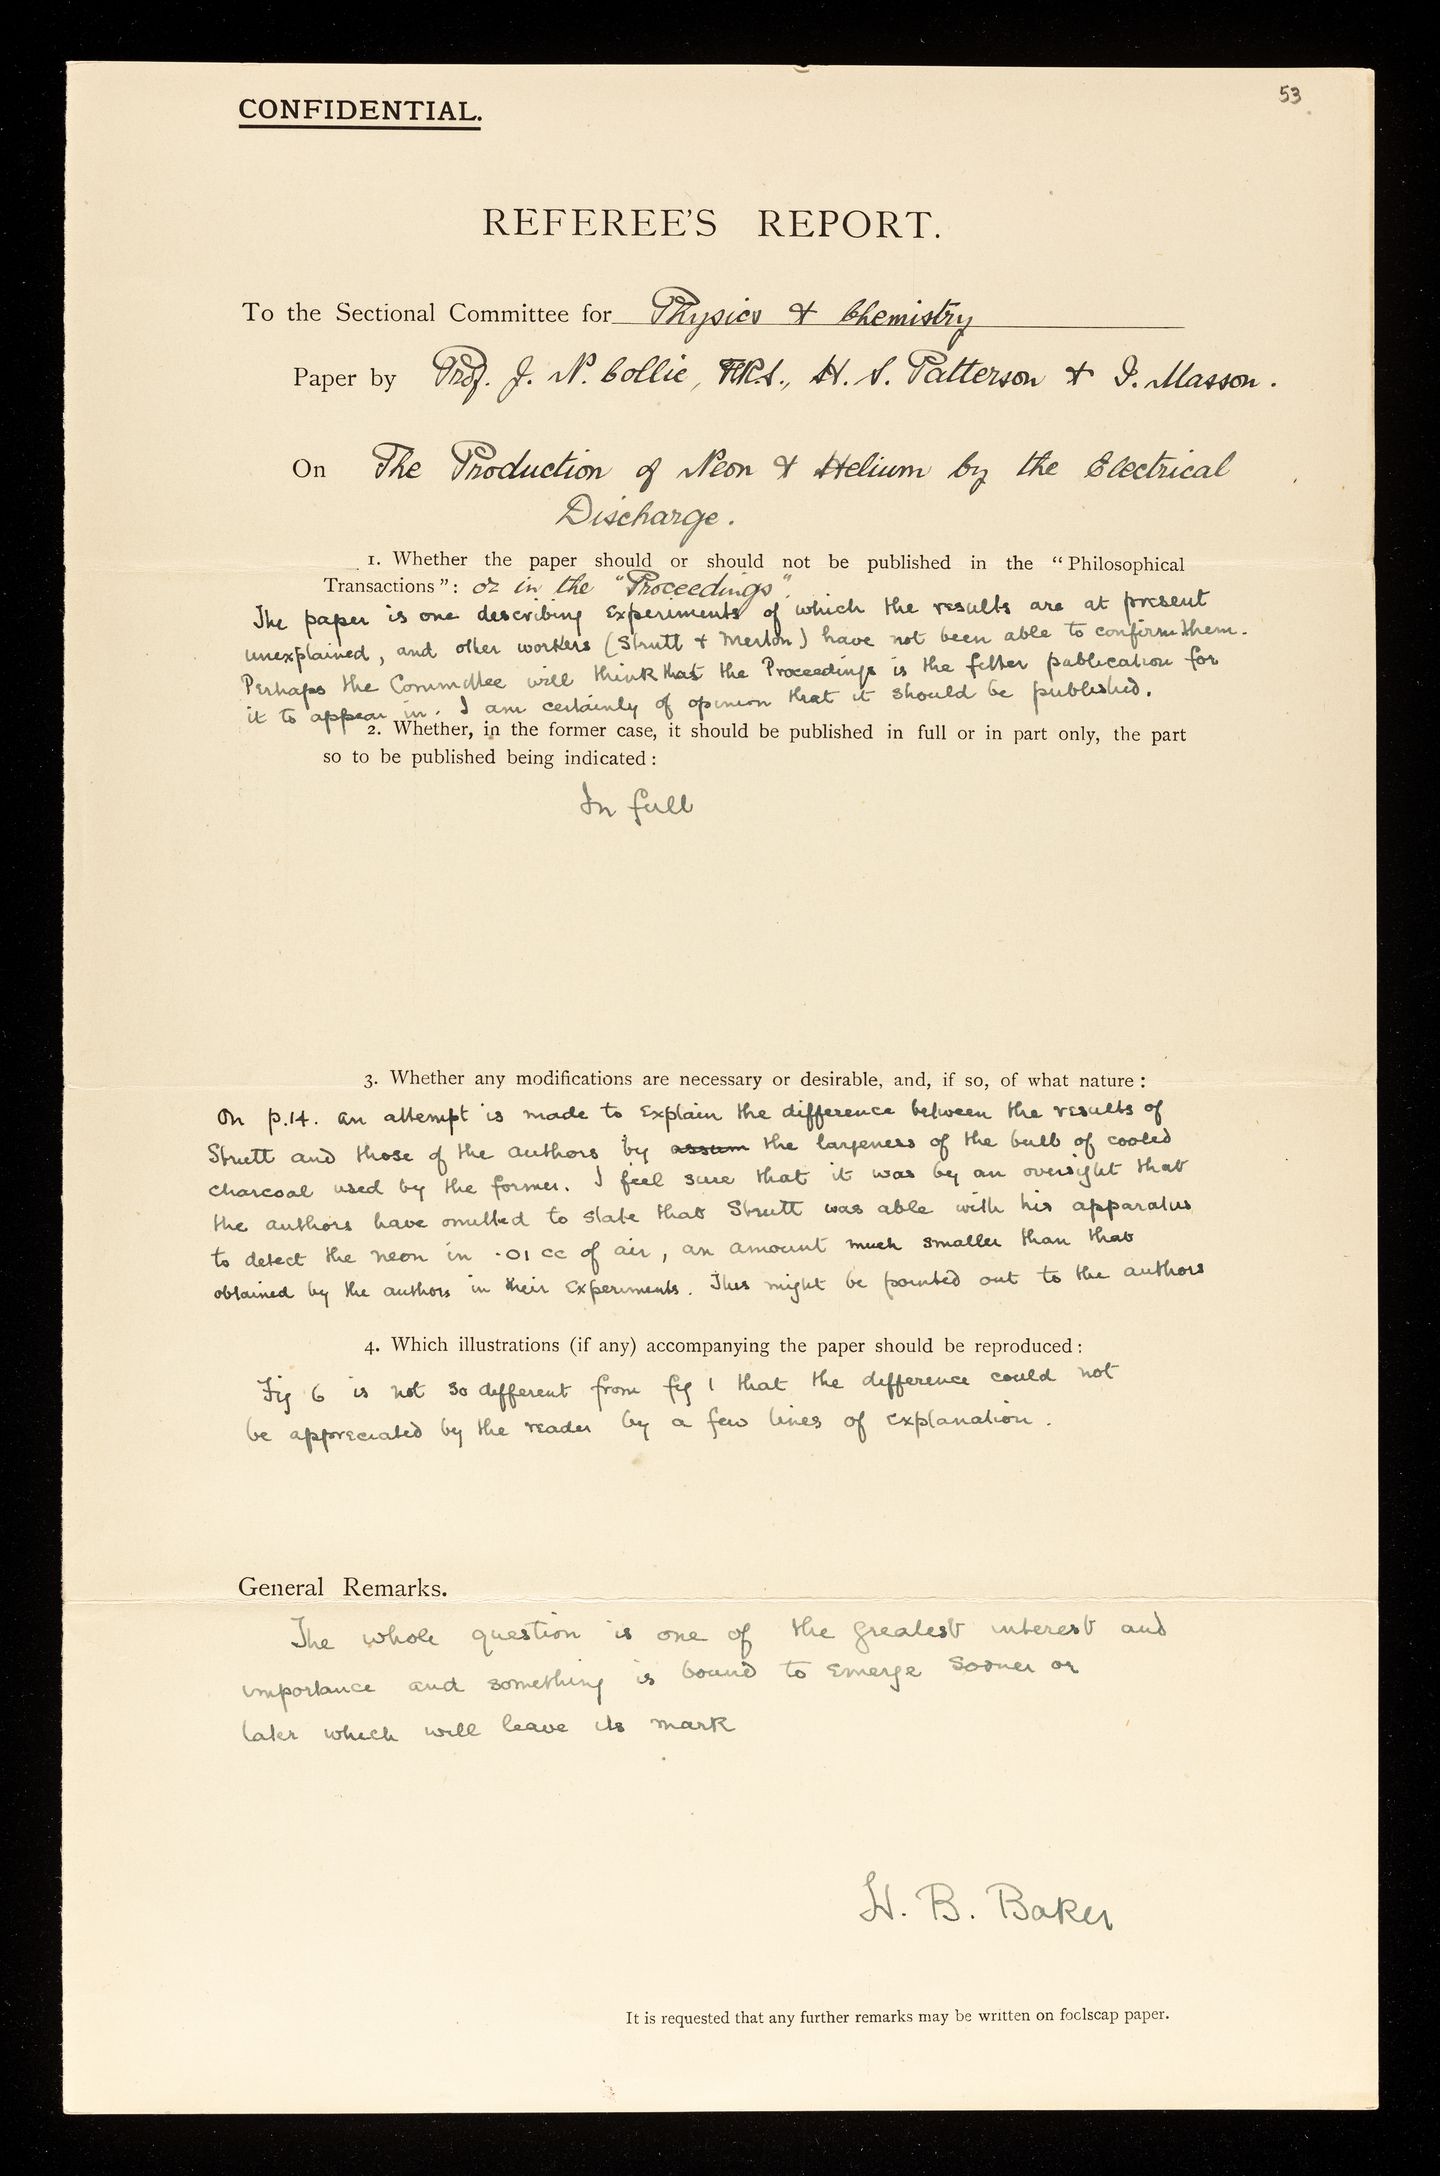 53
CONFIDENTIAL.
REFEREE'S REPORT.
To the Sectional Committee for Physics & Chemistry
Paper by Prof. J. N. Collie, F.R.S., H. S. Patterson & I. Masson.
On The Production of Neon & Helium by the Electrical
Discharge.
1. Whether the paper should or should not be published in the "Philosophical
Transactions": or in the "Proceedings".
The paper is one describing experiments of which the results are at present
unexplained, and other workers (Strutt & Merton) have not been able to confirm them.
Perhaps the Committee will think that the Proceedings is the fitter publication for
it to appear in. I am certainly of opinion that it should be published.
2. Whether, in the former case, it should be published in full or in part only, the part
so to be published being indicated:
In full
3. Whether any modifications are necessary or desirable, and, if so, of what nature:
On p.14. an attempt is made to explain the difference between the results of
Strutt and those of the authors by assum the largeness of the bulb of cooled
charcoal used by the former. I feel sure that it was by an oversight that
the authors have omitted to state that Strutt was able with his apparatus
to detect the neon in .01 cc of air, an amount much smaller than that
obtained by the authors in their experiments. This might be pointed out to the authors
4. Which illustrations (if any) accompanying the paper should be reproduced:
Fig 6 is not so different from fig 1 that the difference could not
be appreciated by the reader by a few lines of explanation.
General Remarks.
The whole question is one of the greatest interest and
importance and something is bound to emerge sooner or
later which will leave its mark
H. B. Baker
It is requested that any further remarks may be written on foolscap paper.